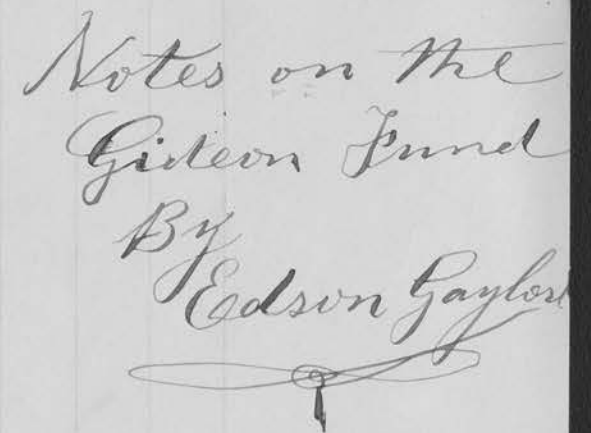 Notes on the
Gideon Fund
By
Edson Gaylord